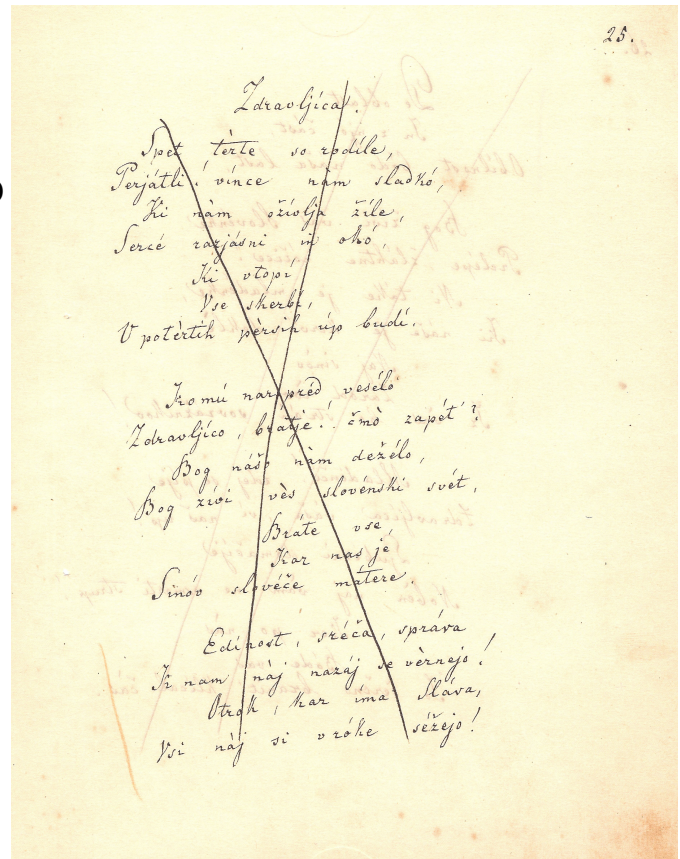 25.
Zdravljíca.
Spet tèrte so rodíle,
Perjátli! vínce nàm sladkó,
Ki nàm ožívlja žíle,
Sercé razjásni in okó,
Ki vtopí
Vse skerbí,
V potèrtih pèrsih úp budí.
Komú narpréd vesélo
Zdravljíco, bratje! čmò zapét'?
Bog nášo nàm deželo,
Bog žívi vès slovénski svét,
Bráte vse,
Kar nas jé
Sinóv slovéče mátere.
Edínost, sréča, správa
K nam nàj nazáj se vèrnejo!
Otrók, kar íma Sláva,
Vsi nàj si v róke séžejo!